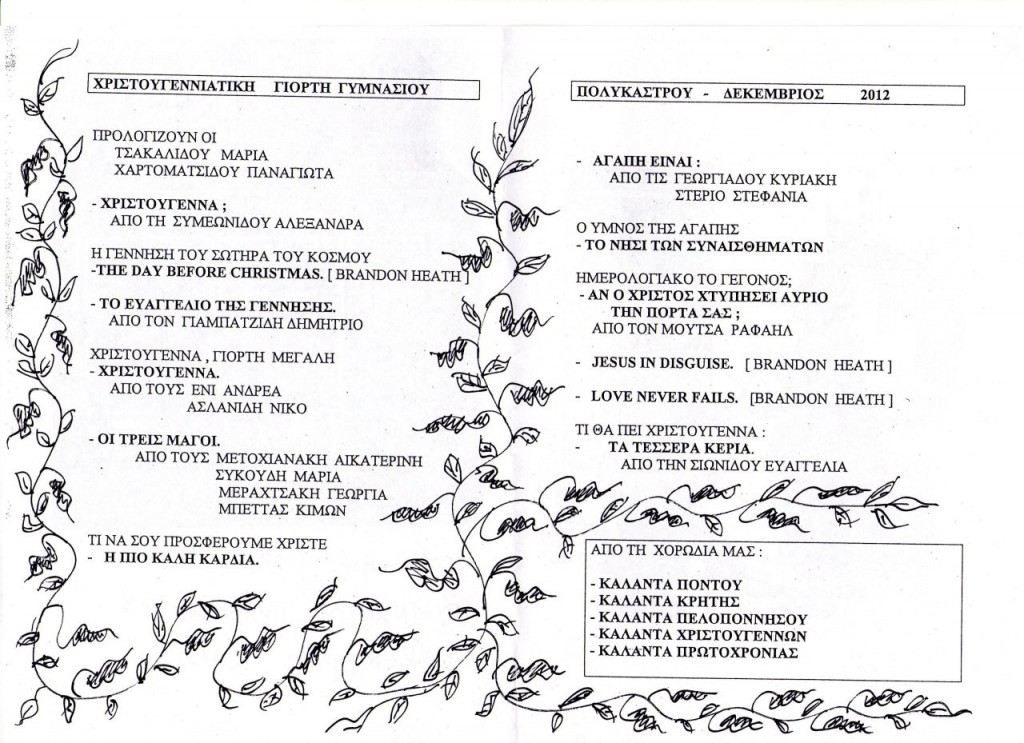 ΧΡΙΣΤΟΥΓΕΝΝΙΑΤΙΚΗ ΓΙΟΡΤΗ ΓΥΜΝΑΣΙΟΥ
ΠΡΟΛΟΓΙΖΟΥΝ ΟΙ
ΤΣΑΚΑΛΙΔΟΥ ΜΑΡΙΑ
ΧΑΡΤΟΜΑΤΣΙΔΟΥ ΠΑΝΑΓΙΩΤΑ
- ΧΡΙΣΤΟΥΓΕΝΝΑ ;
ΑΠΟ ΤΗ ΣΥΜΕΩΝΙΔΟΥ ΑΛΕΞΑΝΔΡΑ
Η ΓΕΝΝΗΣΗ ΤΟΥ ΣΩΤΗΡΑ ΤΟΥ ΚΟΣΜΟΥ
-THE DAY BEFORE CHRISTMAS. [ BRANDON HEATH ]
- ΤΟ ΕΥΑΓΓΕΛΙΟ ΤΗΣ ΓΕΝΝΗΣΗΣ.
ΑΠΟ ΤΟΝ ΓΙΑΜΠΑΤΖΙΔΗ ΔΗΜΗΤΡΙΟ
ΧΡΙΣΤΟΥΓΕΝΝΑ , ΓΙΟΡΤΗ ΜΕΓΑΛΗ
- ΧΡΙΣΤΟΥΓΕΝΝΑ.
ΑΠΟ ΤΟΥΣ ΕΝΙ ΑΝΔΡΕΑ
ΑΣΛΑΝΙΔΗ ΝΙΚΟ
- ΟΙ ΤΡΕΙΣ ΜΑΓΟΙ.
ΑΠΟ ΤΟΥΣ ΜΕΤΟΧΙΑΝΑΚΗ ΑΙΚΑΤΕΡΙΝΗ
ΣΥΚΟΥΔΗ ΜΑΡΙΑ
ΜΕΡΑΧΤΣΑΚΗ ΓΕΩΡΓΙΑ
ΜΠΕΤΤΑΣ ΚΙΜΩΝ
ΤΙ ΝΑ ΣΟΥ ΠΡΟΣΦΕΡΟΥΜΕ ΧΡΙΣΤΕ
- Η ΠΙΟ ΚΑΛΗ ΚΑΡΔΙΑ.
ΠΟΛΥΚΑΣΤΡΟΥ - ΔΕΚΕΜΒΡΙΟΣ 2012
- ΑΓΑΠΗ ΕΙΝΑΙ :
ΑΠΟ ΤΙΣ ΓΕΩΡΓΙΑΔΟΥ ΚΥΡΙΑΚΗ
ΣΤΕΡΙΟ ΣΤΕΦΑΝΙΑ
Ο ΥΜΝΟΣ ΤΗΣ ΑΓΑΠΗΣ
- ΤΟ ΝΗΣΙ ΤΩΝ ΣΥΝΑΙΣΘΗΜΑΤΩΝ
ΗΜΕΡΟΛΟΓΙΑΚΟ ΤΟ ΓΕΓΟΝΟΣ;
- ΑΝ Ο ΧΡΙΣΤΟΣ ΧΤΥΠΗΣΕΙ ΑΥΡΙΟ
ΤΗΝ ΠΟΡΤΑ ΣΑΣ ;
ΑΠΟ ΤΟΝ ΜΟΥΤΣΑ ΡΑΦΑΗΛ
- JESUS IN DISGUISE. [ BRANDON HEATH ]
- LOVE NEVER FAILS. [BRANDON HEATH ]
ΤΙ ΘΑ ΠΕΙ ΧΡΙΣΤΟΥΓΕΝΝΑ :
- ΤΑ ΤΕΣΣΕΡΑ ΚΕΡΙΑ.
ΑΠΟ ΤΗΝ ΣΙΩΝΙΔΟΥ ΕΥΑΓΓΕΛΙΑ
ΑΠΟ ΤΗ ΧΟΡΩΔΙΑ ΜΑΣ :
- ΚΑΛΑΝΤΑ ΠΟΝΤΟΥ
- ΚΑΛΑΝΤΑ ΚΡΗΤΗΣ
- ΚΑΛΑΝΤΑ ΠΕΛΟΠΟΝΝΗΣΟΥ
- ΚΑΛΑΝΤΑ ΧΡΙΣΤΟΥΓΕΝΝΩΝ
- ΚΑΛΑΝΤΑ ΠΡΩΤΟΧΡΟΝΙΑΣ